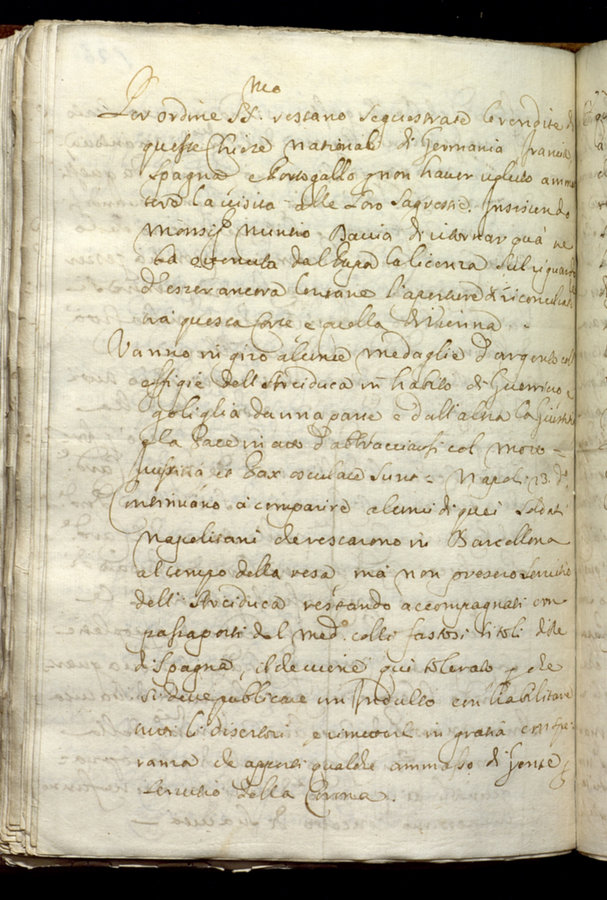 Per ordine SS.mo restano sequestrate le rendite di
queste Chiese nationali di Germania francia
Spagna e Portogallo p non haver voluto amme
ttere la visita alle loro Sagrestie. Insistendo
Monsig.r Nuntio di ritornar quà ne
hà ottenuta dal Papa la licenza sul riguardo
d'esser ancora lontane l'aperture di riconciliat
trà questa Corte e quella di Vienna.
Vanno in giro alcune medaglie d'argento coll
effigie dell'Arciduca in habito di Guerriero e
goliglia da una parte e dall'altra la Giustitia
e la Pace in atto d'abbracciarsi col moto =
Iustitia et Pax osculatae sunt = Napoli 23. d.o
Continuano à comparire alcuni di quei soldati
Napolitani che restarono in Barcellona
al tempo della resa mà non presero servitio
dell'Arciduca restando accompagnati con
passaporti del med.o colli fastosi titoli di Re
di Spagna, il che viene qui tolerato p che
si deve publicare un Indulto con habilitare
tutti li disertori e rimetterli in gratia con spe-
ranza che apporti qualche ammasso di gente
servitio della Corona.